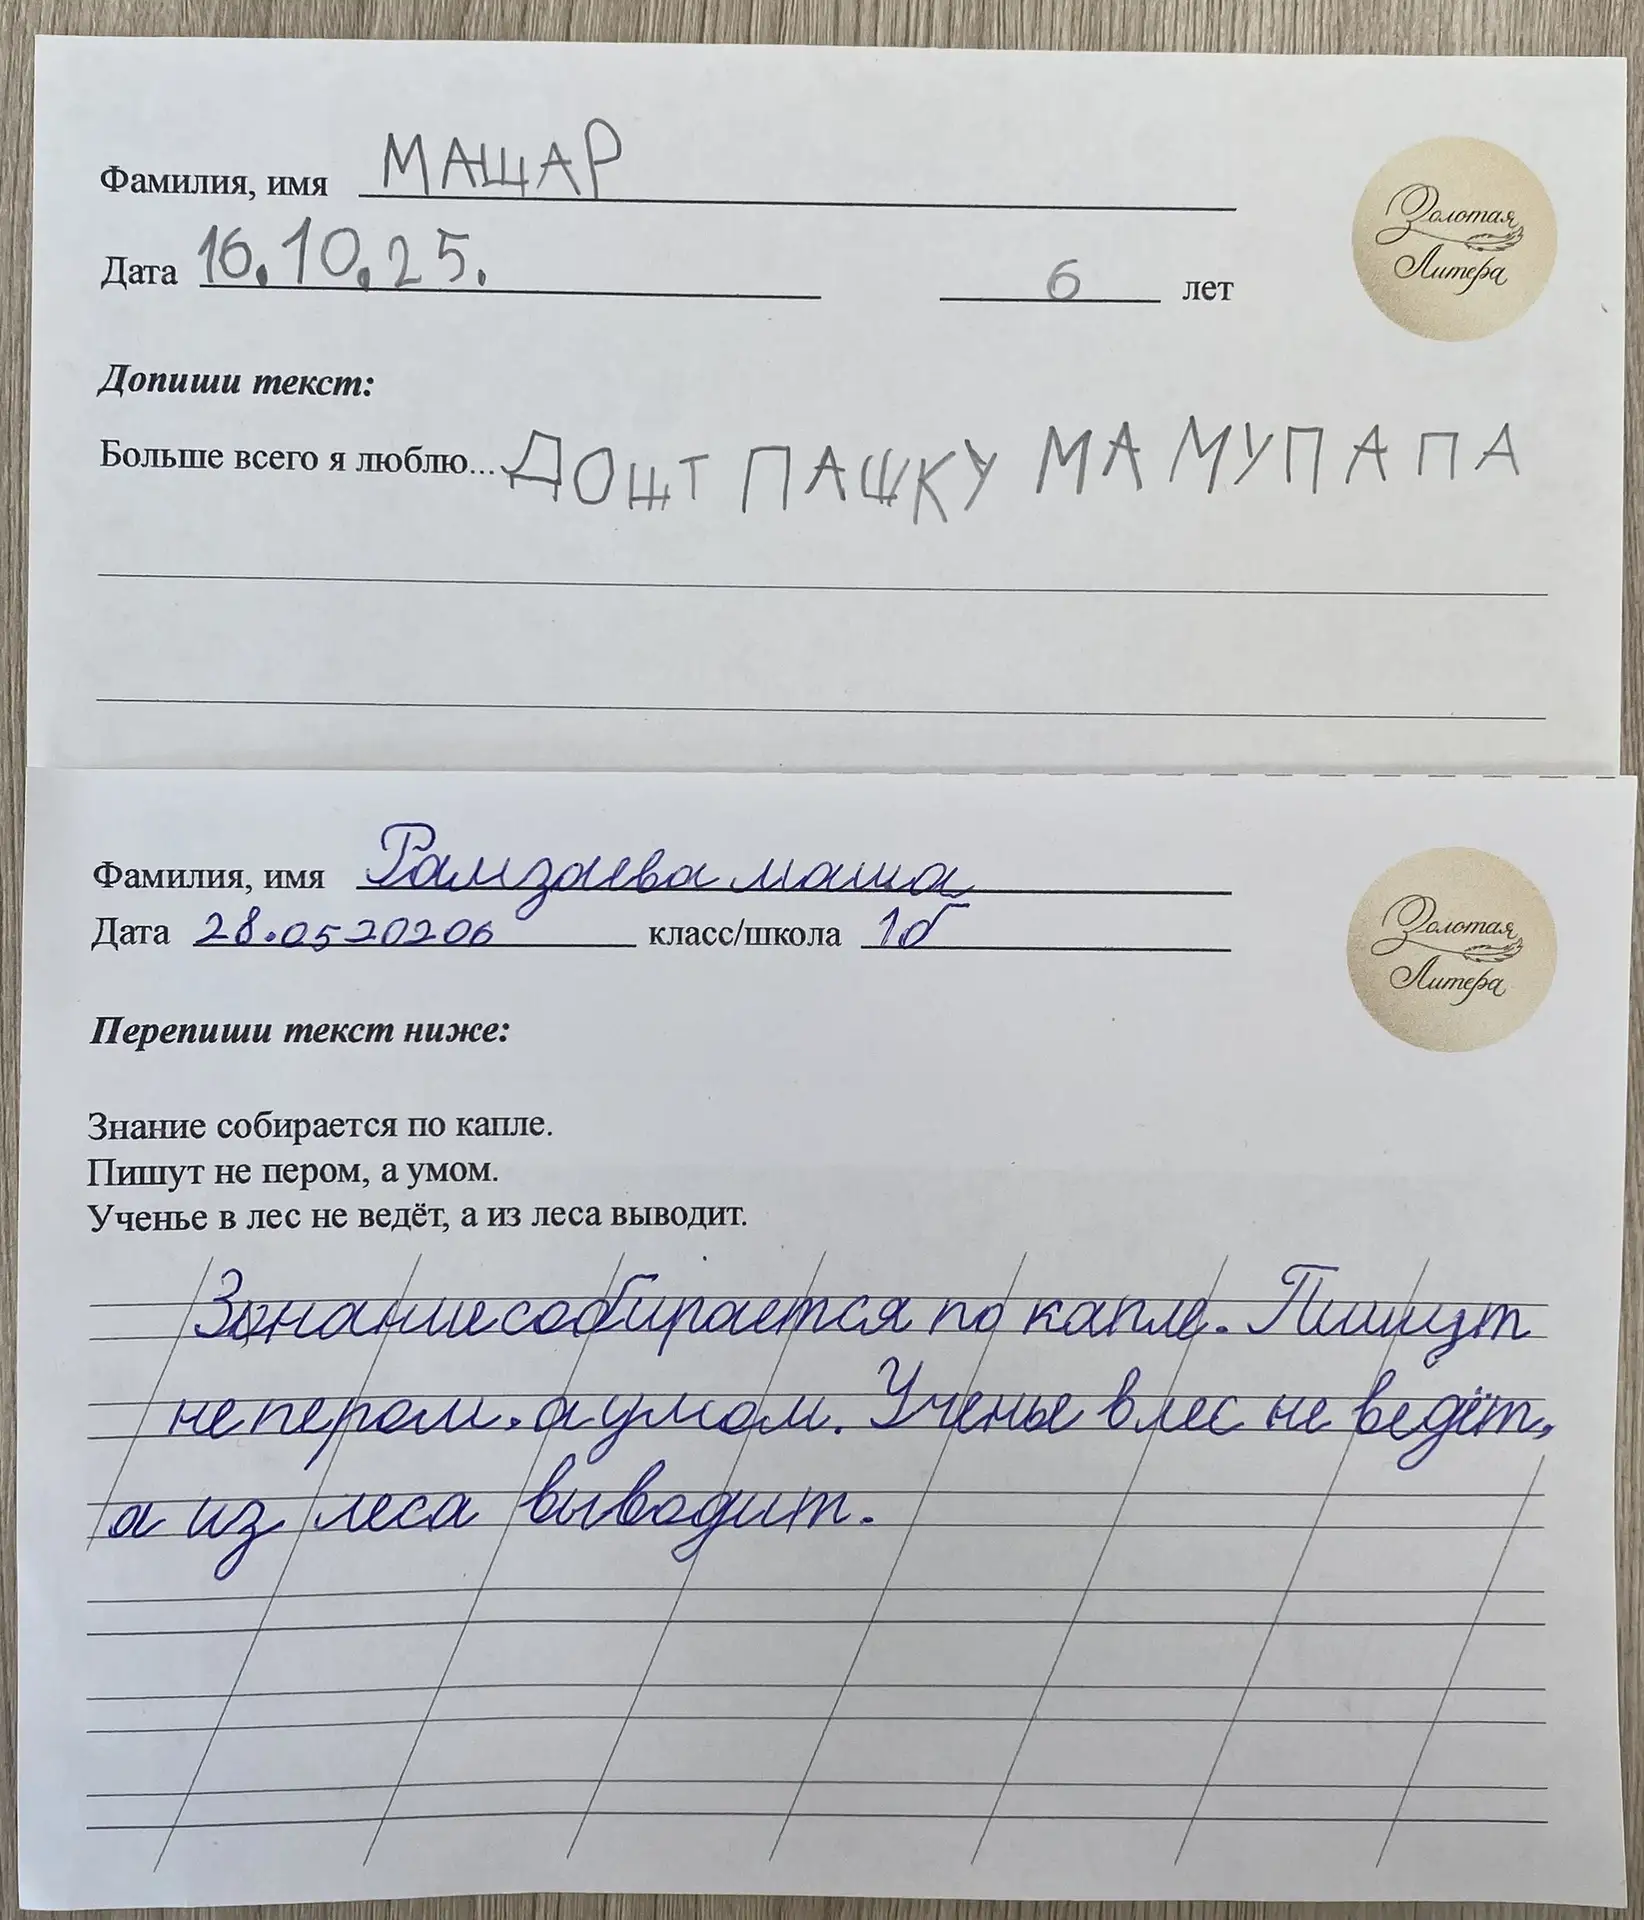 Фамилия, имя МАЩАР
Золотая
Литера
Дата 16.10.25. 6 лет
Допиши текст:
Больше всего я люблю... ДОЩТ ПАШКУ МАМУПАПА
Фамилия, имя Рамзаева маша
Дата 28.0520206 класс/школа 1б
Золотая
Литера
Перепиши текст ниже:
Знание собирается по капле.
Пишут не пером, а умом.
Ученье в лес не ведёт, а из леса выводит.
Знание собирается по капле. Пишут
не пером, а умом. Ученье в лес не ведёт,
а из леса выводит.